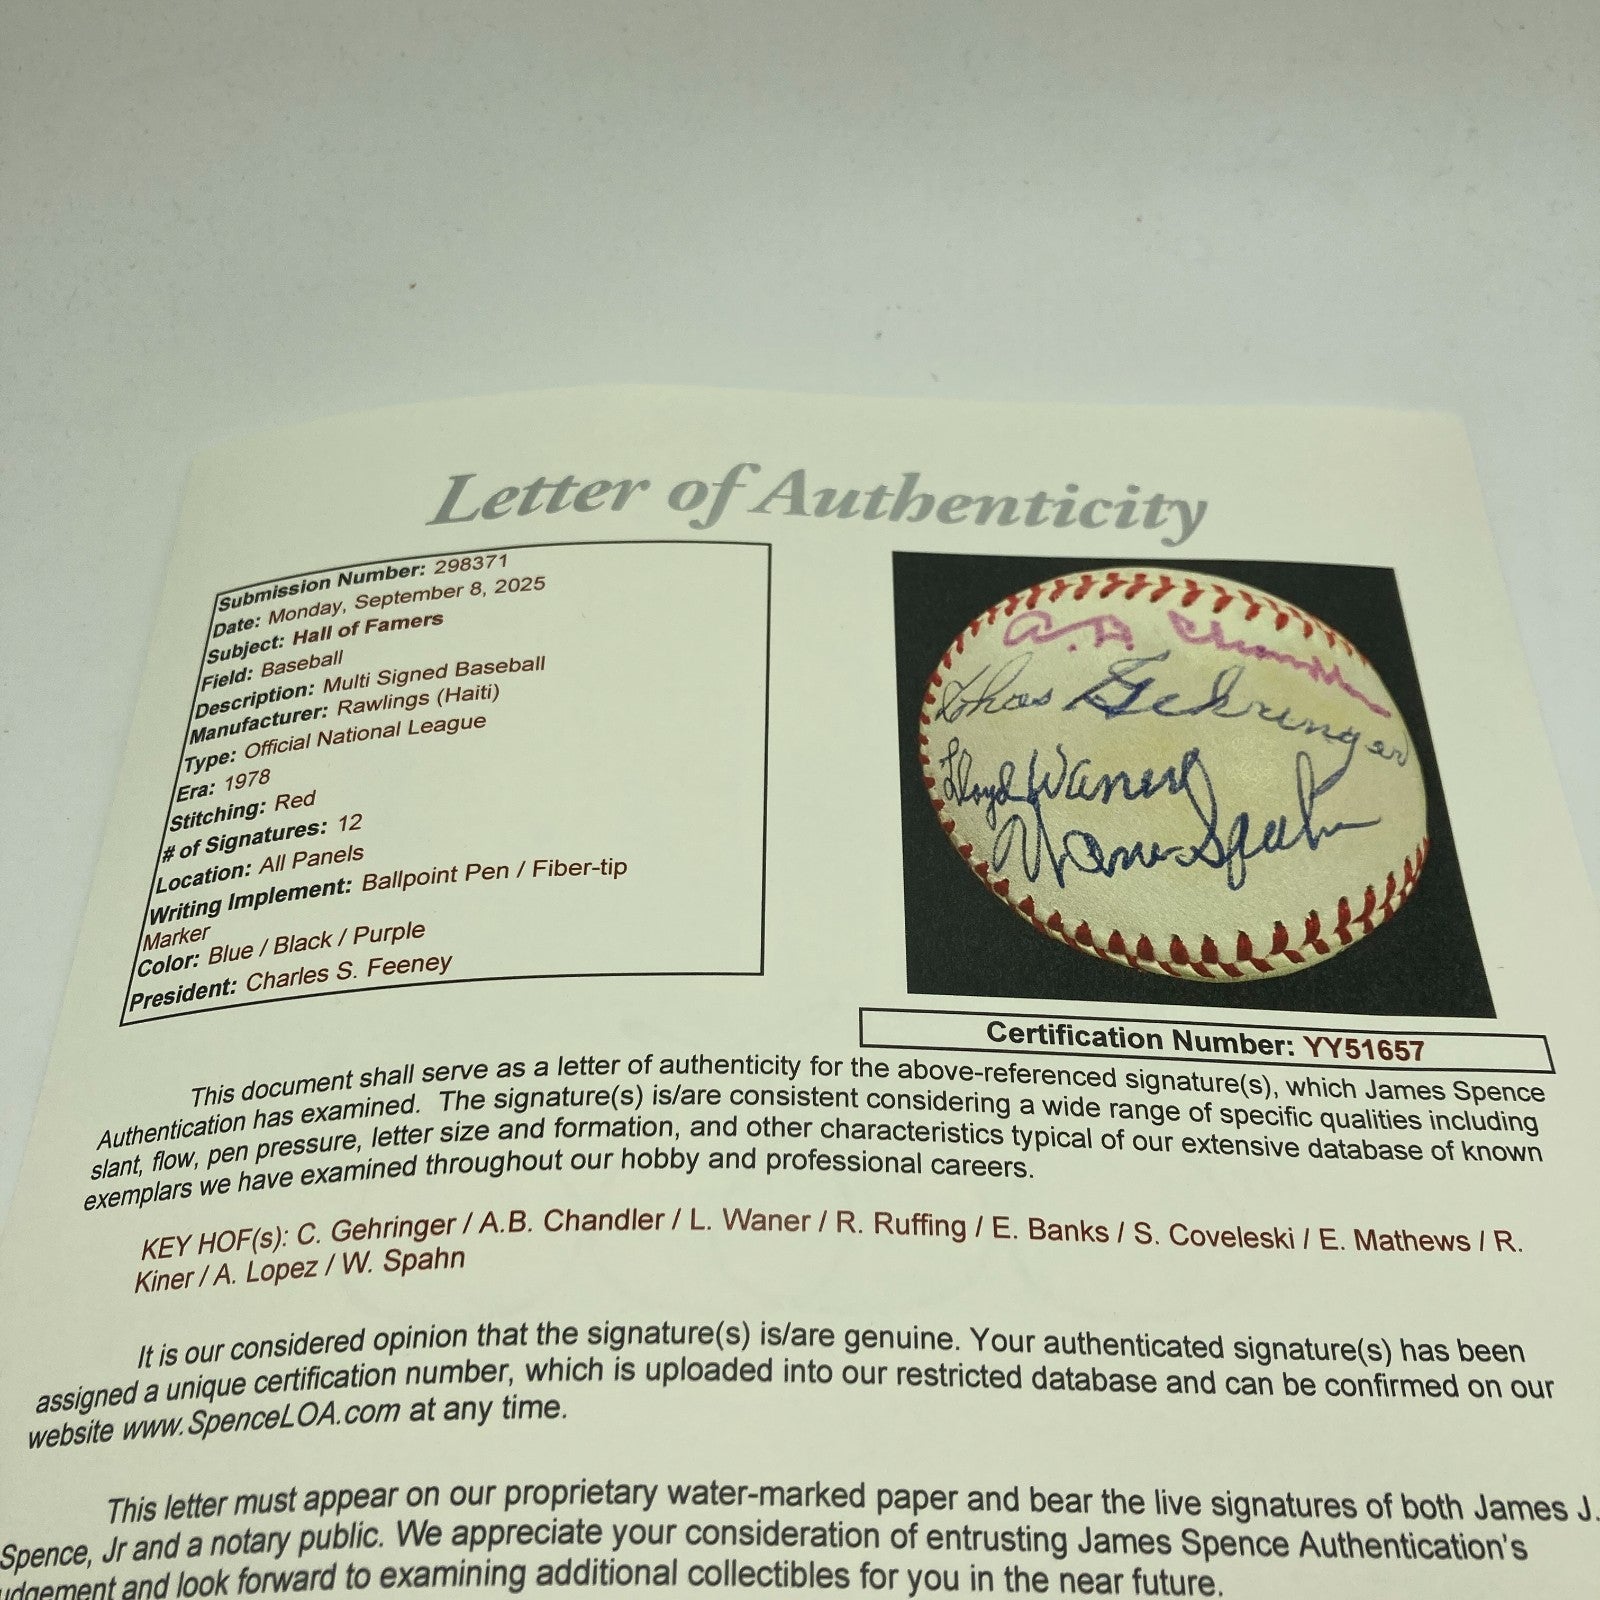 Letter of Authenticity
Submission Number: 298371
Date: Monday, September 8, 2025
Subject: Hall of Famers
Field: Baseball
Description: Multi Signed Baseball
Manufacturer: Rawlings (Haiti)
Type: Official National League
Era: 1978
Stitching: Red
# of Signatures: 12
Location: All Panels
Writing Implement: Ballpoint Pen / Fiber-tip
Marker
Color: Blue / Black / Purple
President: Charles S. Feeney
A.B. Chandler
Chas Gehringer
Lloyd Waner
Warren Spahn
Certification Number: YY51657
This document shall serve as a letter of authenticity for the above-referenced signature(s), which James Spence
Authentication has examined. The signature(s) is/are consistent considering a wide range of specific qualities including
slant, flow, pen pressure, letter size and formation, and other characteristics typical of our extensive database of known
exemplars we have examined throughout our hobby and professional careers.
KEY HOF(s): C. Gehringer / A.B. Chandler / L. Waner / R. Ruffing / E. Banks / S. Coveleski / E. Mathews / R.
Kiner / A. Lopez / W. Spahn
It is our considered opinion that the signature(s) is/are genuine. Your authenticated signature(s) has been
assigned a unique certification number, which is uploaded into our restricted database and can be confirmed on our
website www.SpenceLOA.com at any time.
This letter must appear on our proprietary water-marked paper and bear the live signatures of both James J.
Spence, Jr and a notary public. We appreciate your consideration of entrusting James Spence Authentication's
udgement and look forward to examining additional collectibles for you in the near future.